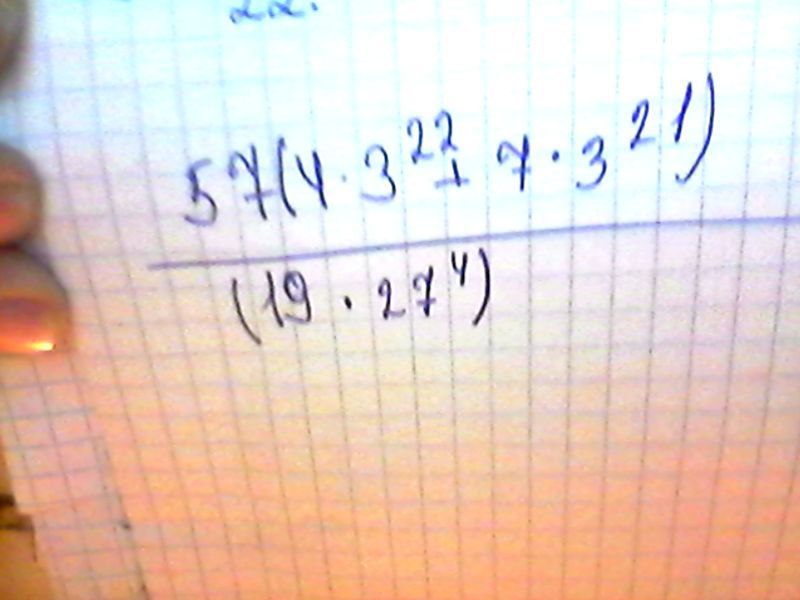 22.
57(4·3²² + 7·3²¹)
(19·27⁴)